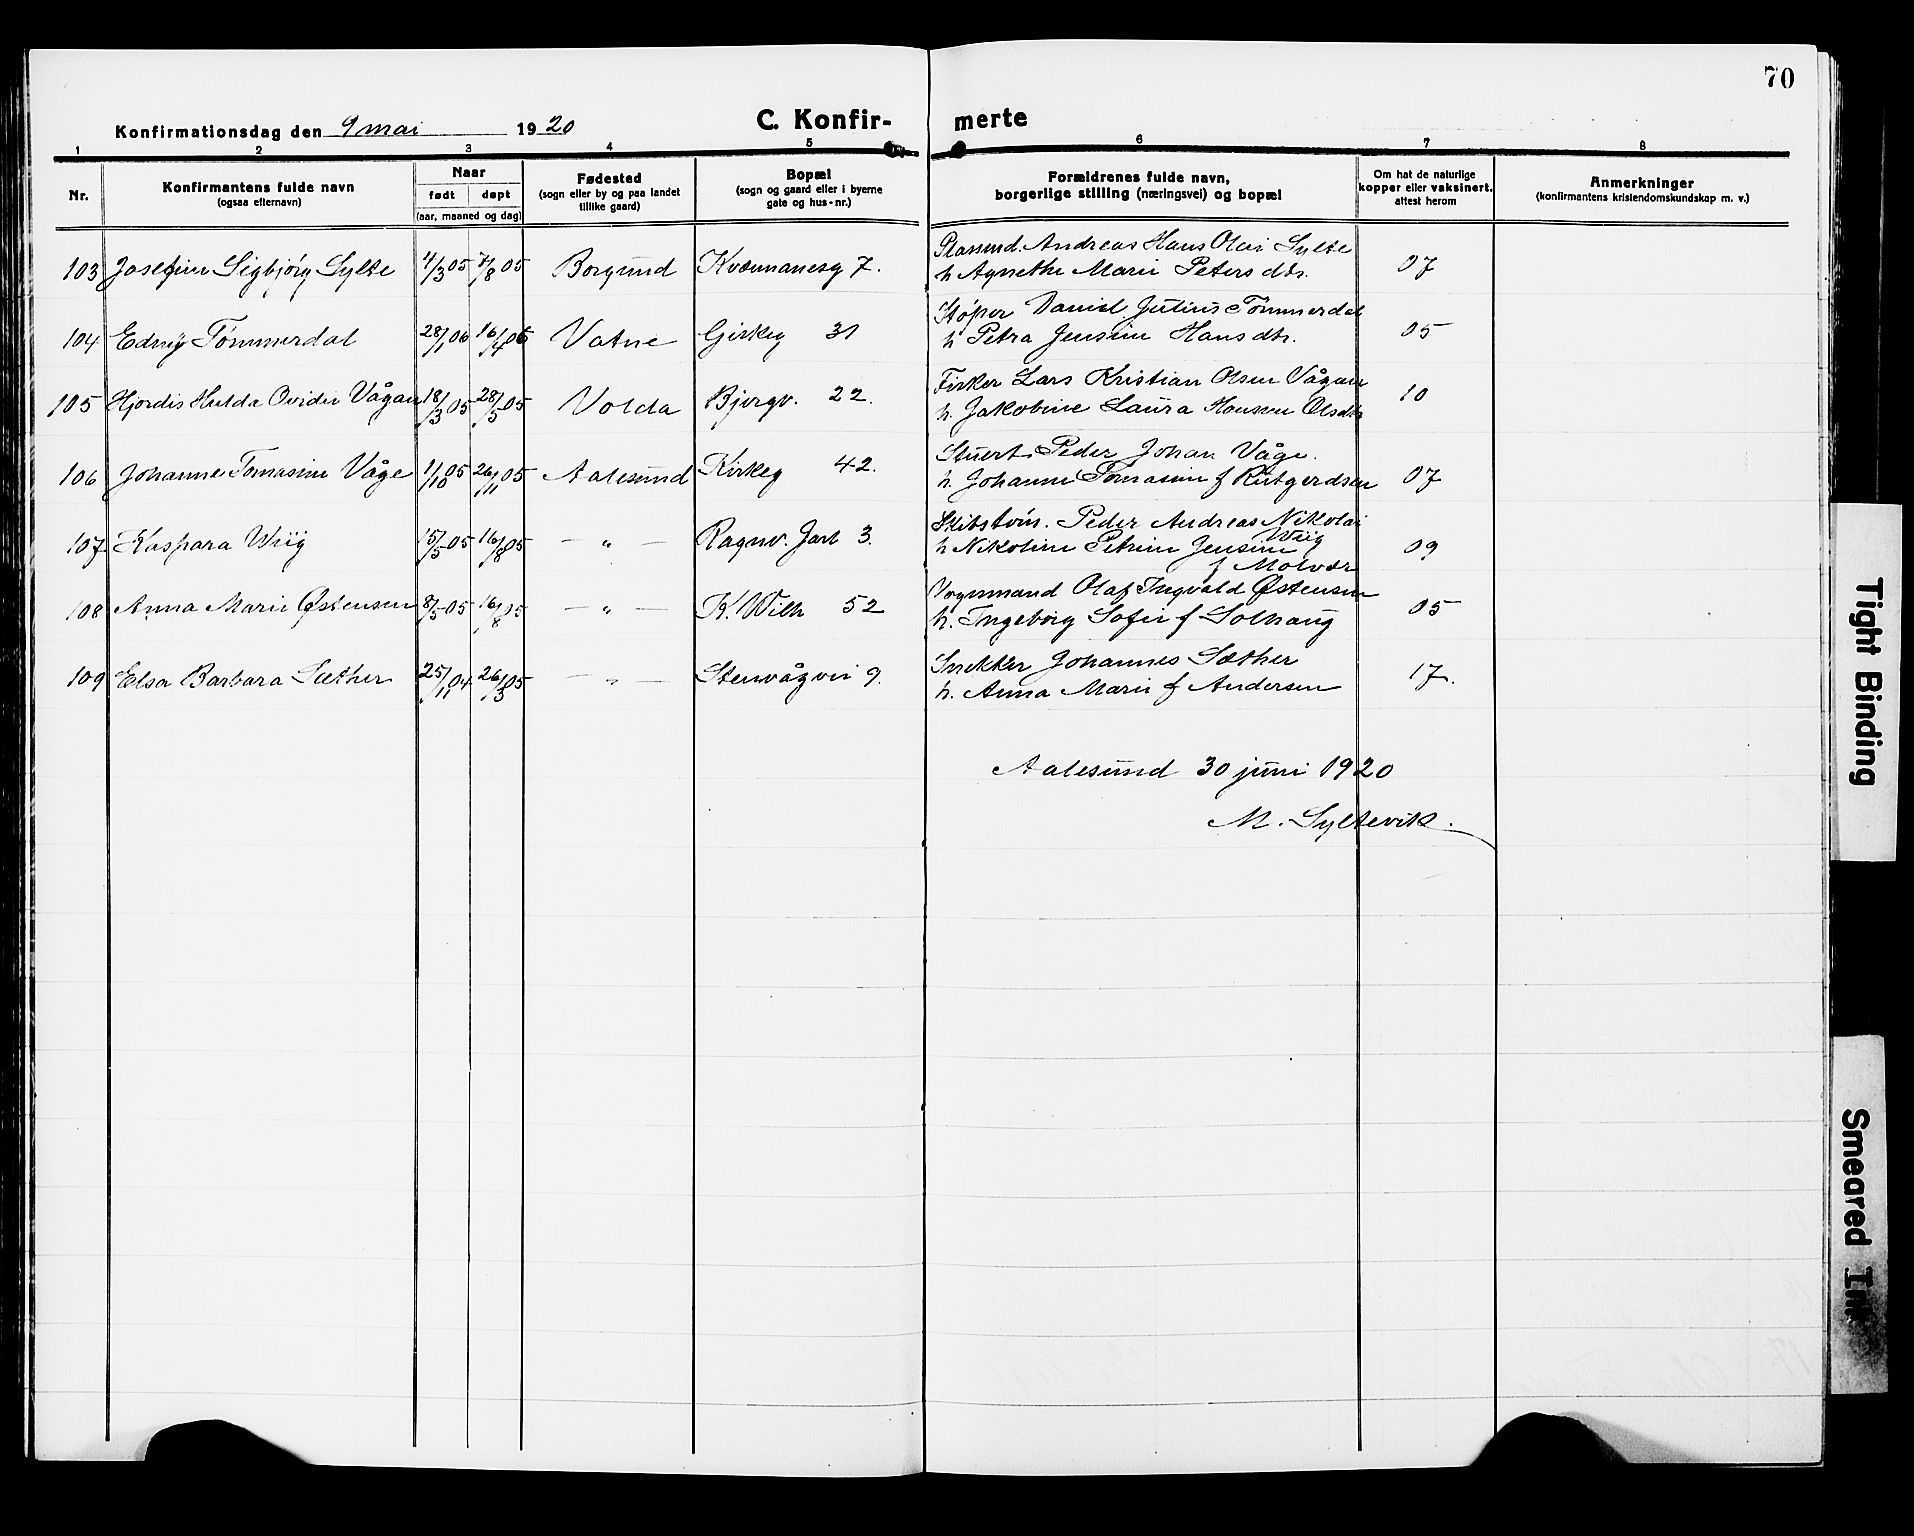 70
Konfirmationsdag den 9 mai 1920 C. Konfir- merte
1 2 3 4 5 6 7 8
Nr. Konfirmantens fulde navn (ogsaa efternavn) Naar født døpt (aar, maaned og dag) Fødested (sogn eller by og paa landet tillike gaard) Bopæl (sogn og gaard eller i byerne gate og hus-nr.) Forældrenes fulde navn, borgerlige stilling (næringsvei) og bopæl Om hat de naturlige kopper eller vaksinert. attest herom Anmerkninger (konfirmantens kristendomskundskap m. v.)
Andreas Hans Olai Sylte
103 Josefine Sigbjørg Sylte 4/3 05 /8 05 Borgund 7. h Agnethe Marie Petersdtr. 07
Støper Daniel Julius Tømmerdal
104 Edny Tømmerdal 28/1 06 16/4 06 Vatne Girkeg 31 h Petra Jensine Hansdtr. 05
Fisker Lars Kristian Olsen Vågan
105 Hjørdis Hulda Ovidie Vågan 18/3 05 28/5 05 Volda Bjergv. 22. h. Jakobine Laura Hansen Olsdtr 10
Stuert Peder Johan Våge.
106 Johanne Tomasine Våge 1/10 05 26/11 05 Aalesund Kirkeg 42. h. Johanne Tomasine f Rutgerdsen 07
Skibstøm. Peder Andreas Nikolai Wiig
107 Kaspara Wiig 15/5 05 16/8 05 — " — Ragnv. Jarl 3. h Nikoline Petrine Jensine f Molvær 09
Vognmand Olaf Ingvald Østensen
108 Anna Marie Østensen 8/5 05 16/8 05 — " — K. Wilh 52 h. Ingeborg Sofie f Solhaug 05
Snekker Johannes Sæther
109 Elsa Barbara Sæther 25/11 04 26/3 05 — " — Stenvågvei 9. h. Anna Marie f Andersen 17.
Aalesund 30 juni 1920
M. Syltevik.
Tight Binding
Smeared Ink